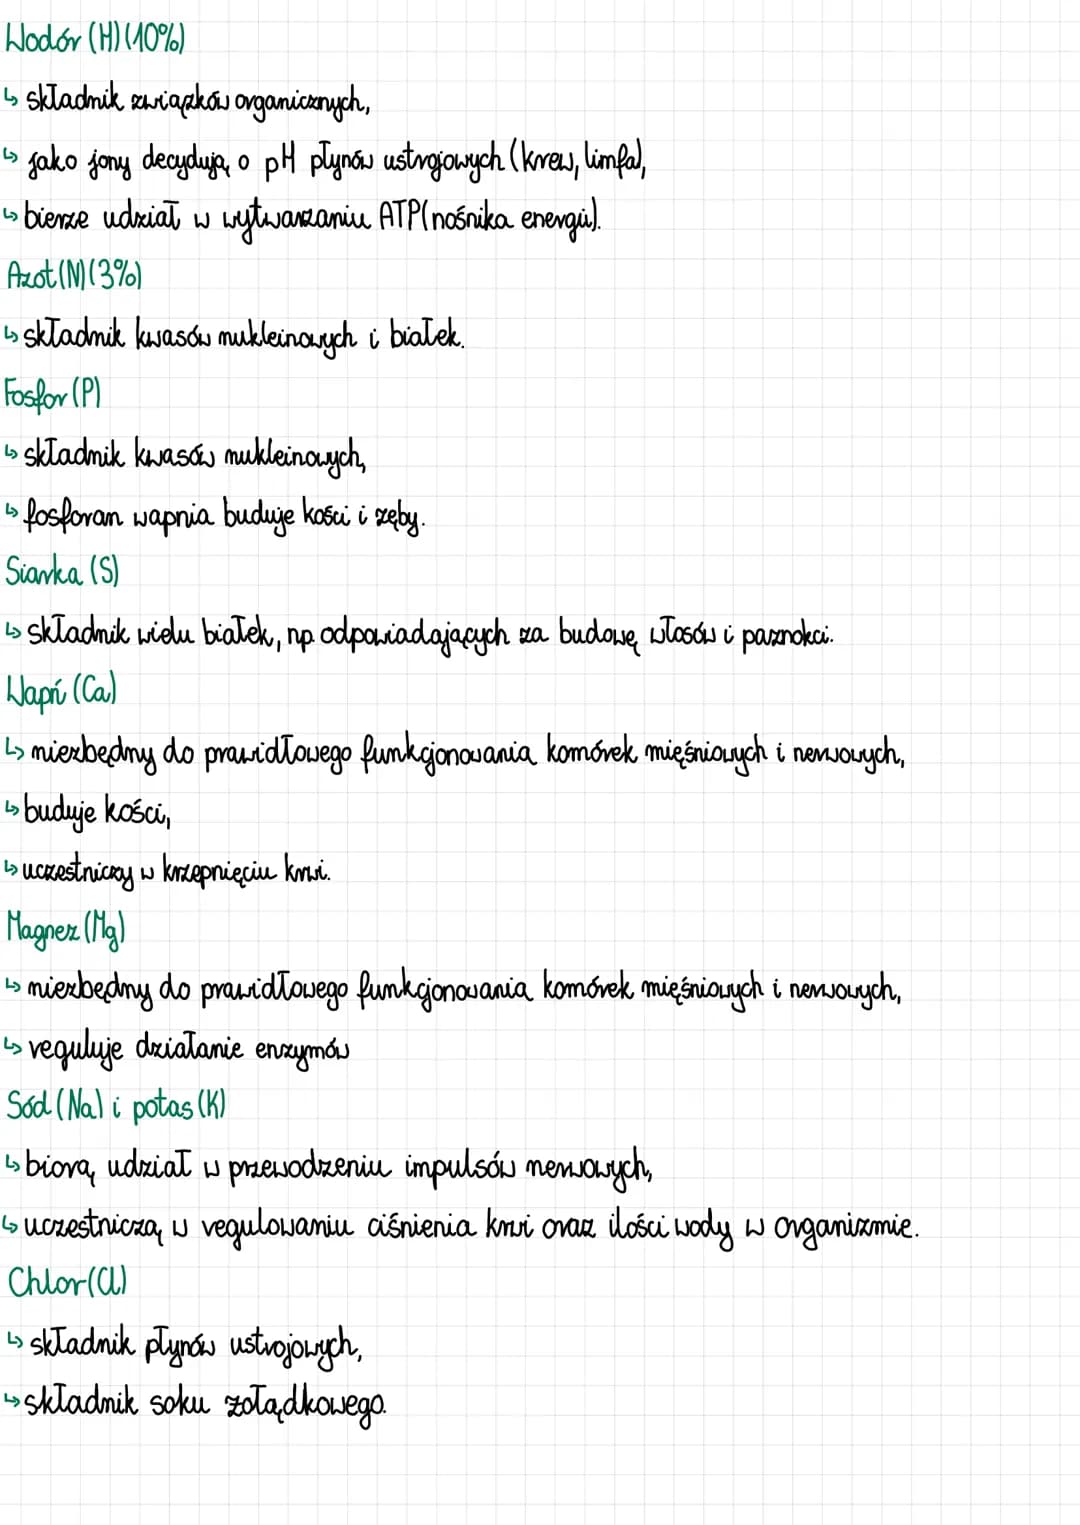 Wodór (H) (10%)
↳ składnik związków organicznych,
↳ jako jony decydują o pH płynów ustrojowych (krew, limfa),
↳ bierze udział w wytwarzaniu ATP (nośnika energii).
Azot (N) (3%)
↳ składnik kwasów nukleinowych i białek.
Fosfor (P)
↳ składnik kwasów nukleinowych,
↳ fosforan wapnia buduje kości i zęby.
Siarka (S)
↳ składnik wielu białek, np. odpowiadających za budowę włosów i paznokci.
Wapń (Ca)
↳ niezbędny do prawidłowego funkcjonowania komórek mięśniowych i nerwowych,
↳ buduje kości,
↳ uczestniczy w krzepnięciu krwi.
Magnez (Mg)
↳ niezbędny do prawidłowego funkcjonowania komórek mięśniowych i nerwowych,
↳ reguluje działanie enzymów
Sód (Na) i potas (K)
↳ biorą udział w przewodzeniu impulsów nerwowych,
↳ uczestniczą w regulowaniu ciśnienia krwi oraz ilości wody w organizmie.
Chlor (Cl)
↳ składnik płynów ustrojowych,
↳ składnik soku żołądkowego.